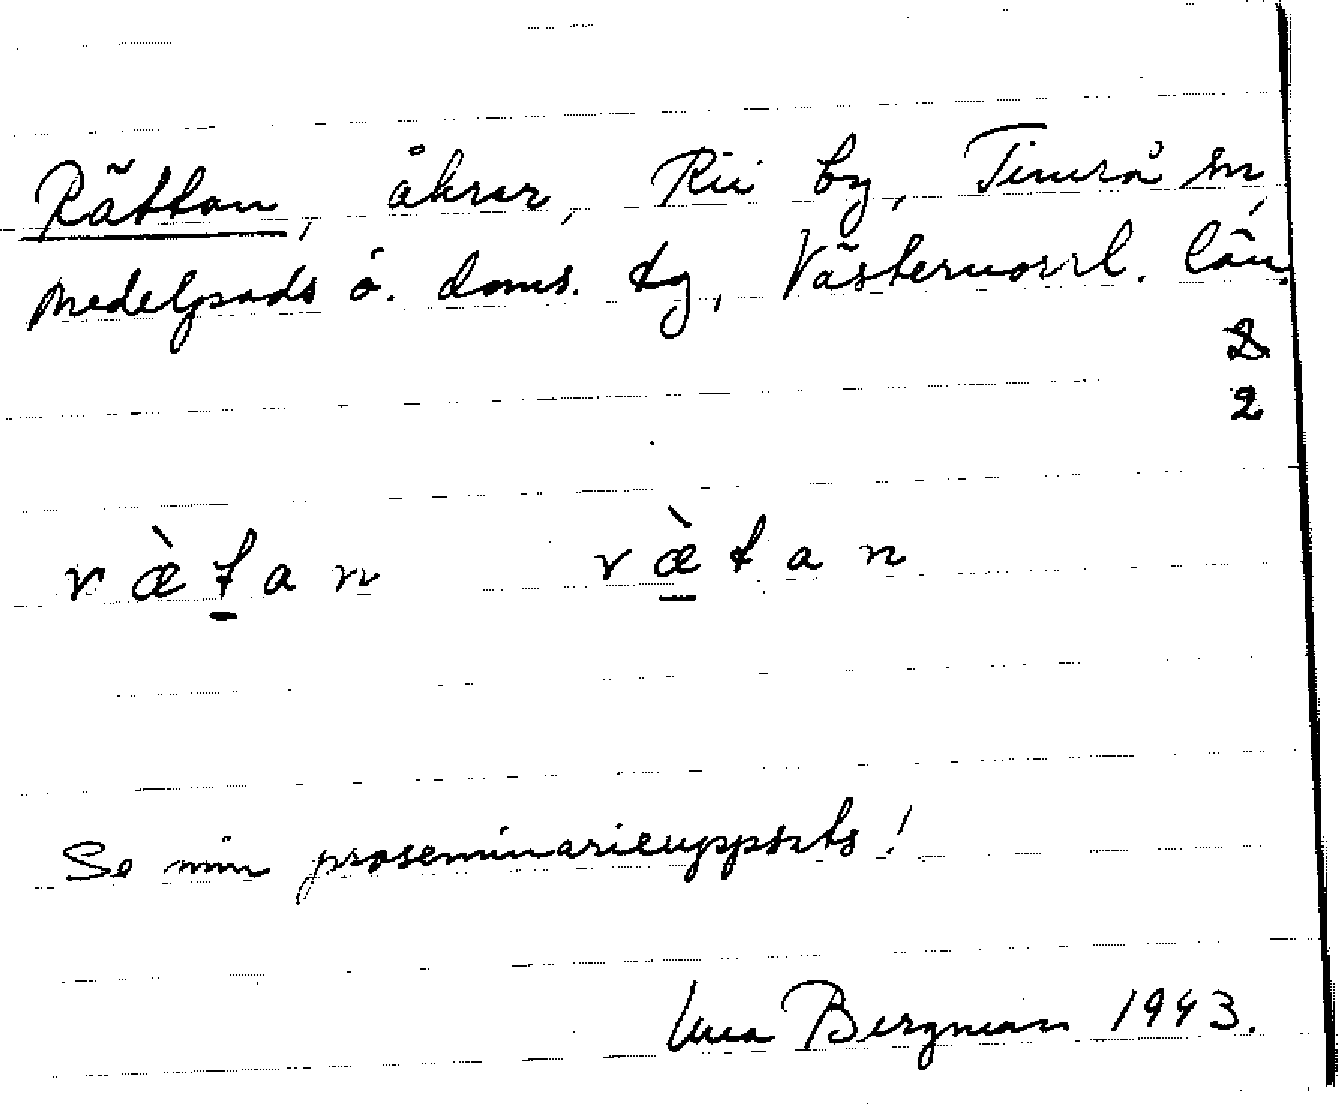 Rättan, åkrar, Rii by, Timrå sn,
Medelpads ö. doms. tg, Västernorrl. län.
2
2
r æ̀ t̲ a n r æ̲̀ t a n
Se min proseminarieuppsats!
Bergman 1943.